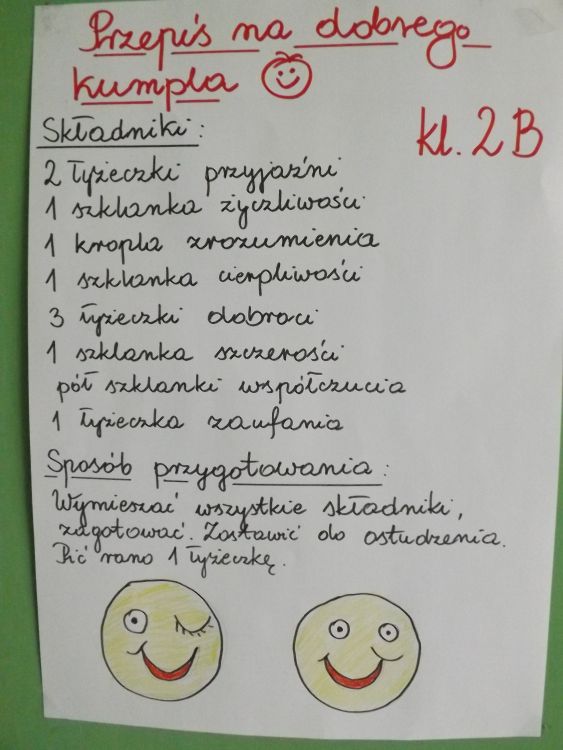 Przepis na dobrego
kumpla
kl. 2B
Składniki:
2 łyżeczki przyjaźni
1 szklanka życzliwości
1 kropla zrozumienia
1 szklanka cierpliwości
3 łyżeczki dobroci
1 szklanka szczerości
pół szklanki współczucia
1 łyżeczka zaufania
Sposób przygotowania:
Wymieszać wszystkie składniki,
zagotować. Zostawić do ostudzenia.
Pić rano 1 łyżeczkę.